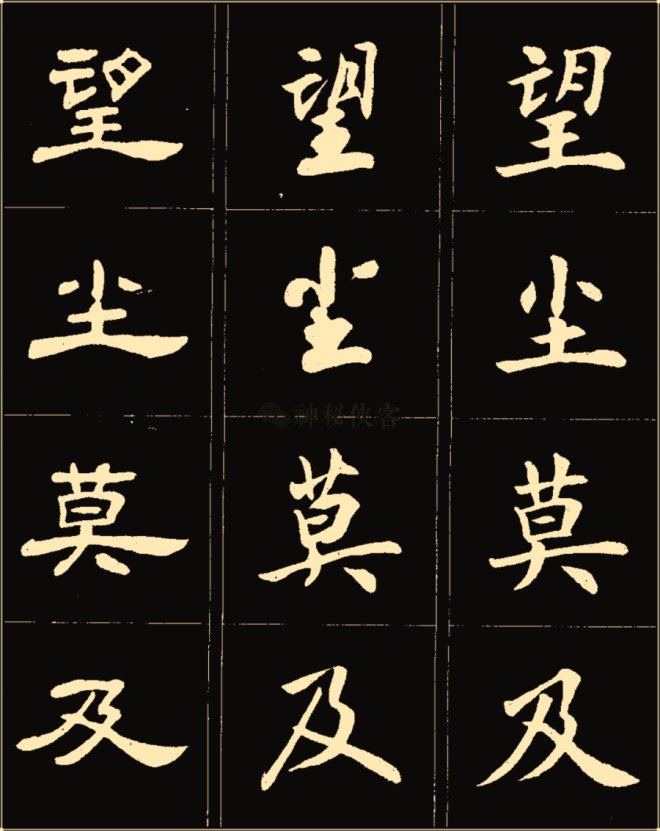 望 望 望
尘 尘 尘
神秘侠客
莫 莫 莫
及 及 及